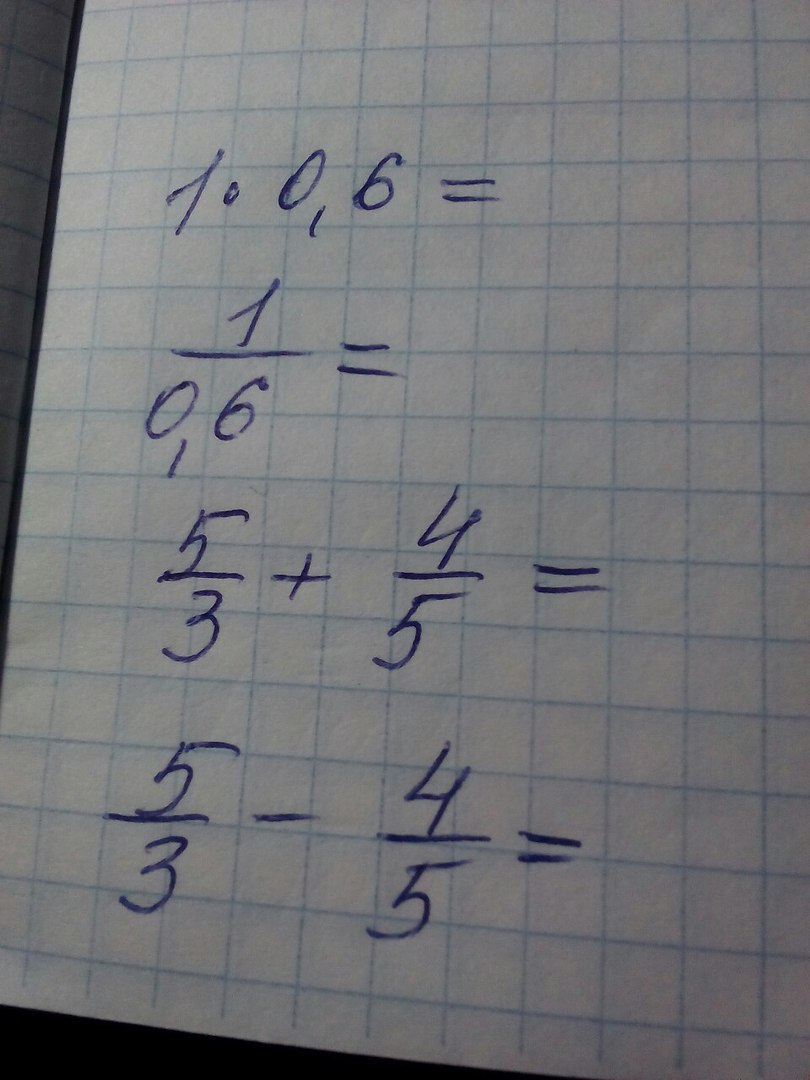 1 · 0,6 =
1/0,6 =
5/3 + 4/5 =
5/3 - 4/5 =